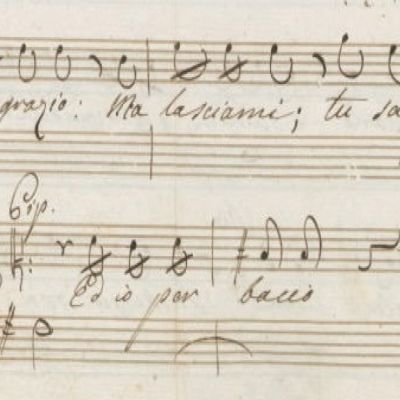 grazio: Ma lasciami; tu sa
Cip.
Ed io per bacco